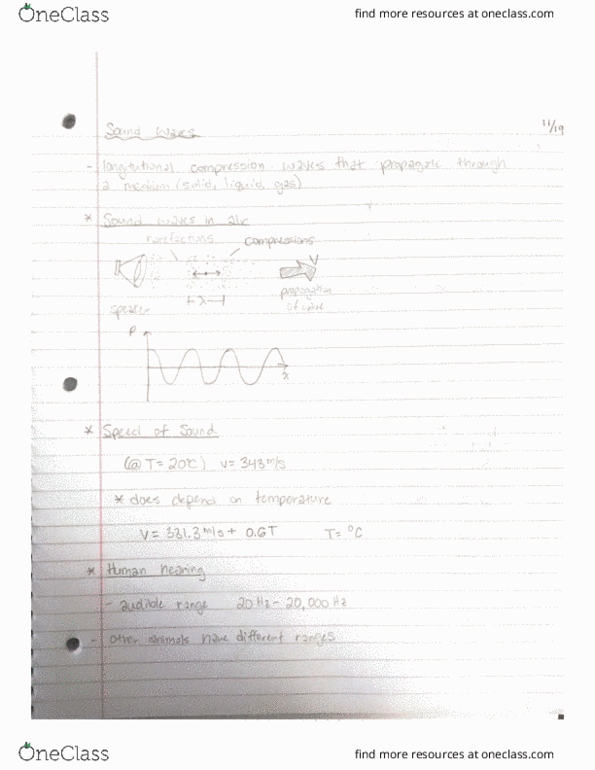 OneClass
find more resources at oneclass.com
11/19
Sound Waves
- longitutional compression waves that propagate through
a medium (solid, liquid, gas)
* Sound waves in air
rarefactions compressions
V
propagation
of wave
speaker
P
x
* Speed of Sound
(@ T = 20°C) v = 343 m/s
* does depend on temperature
V = 331.3 m/s + 0.6T T = °C
* Human hearing
- audible range 20 Hz - 20,000 Hz
- other animals have different ranges
OneClass
find more resources at oneclass.com